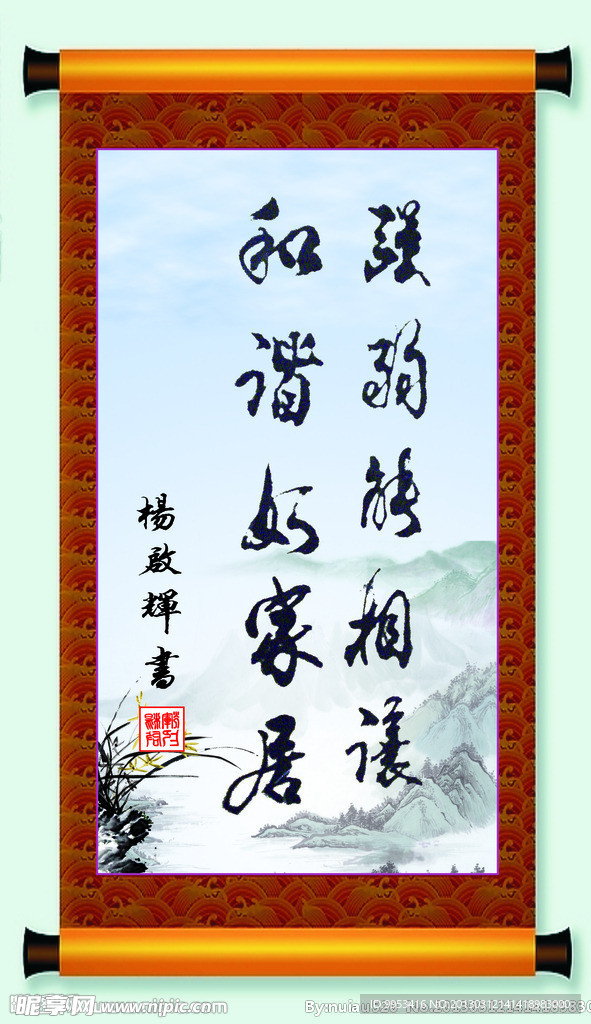 强弱能相让
和谐好家居
楊啟輝書
昵享网 www.nipic.com
ID:9953416 NO:20130312141418983000